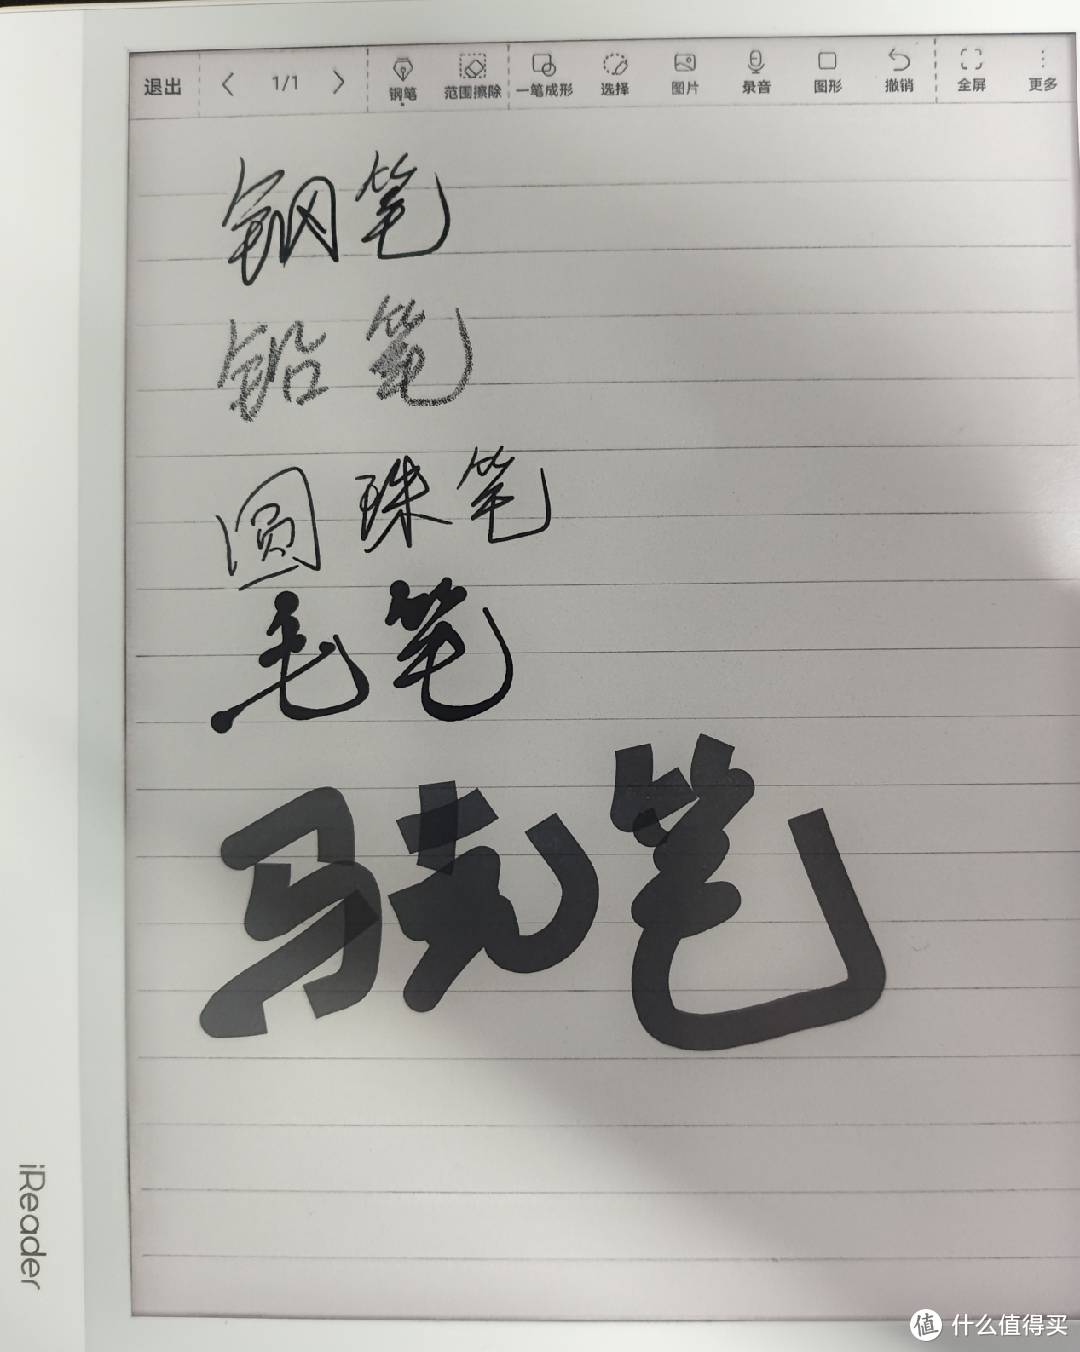 退出 1/1 钢笔 范围擦除 一笔成形 选择 图片 录音 图形 撤销 全屏 更多
钢笔
铅笔
圆珠笔
毛笔
马克笔
iReader
值 什么值得买